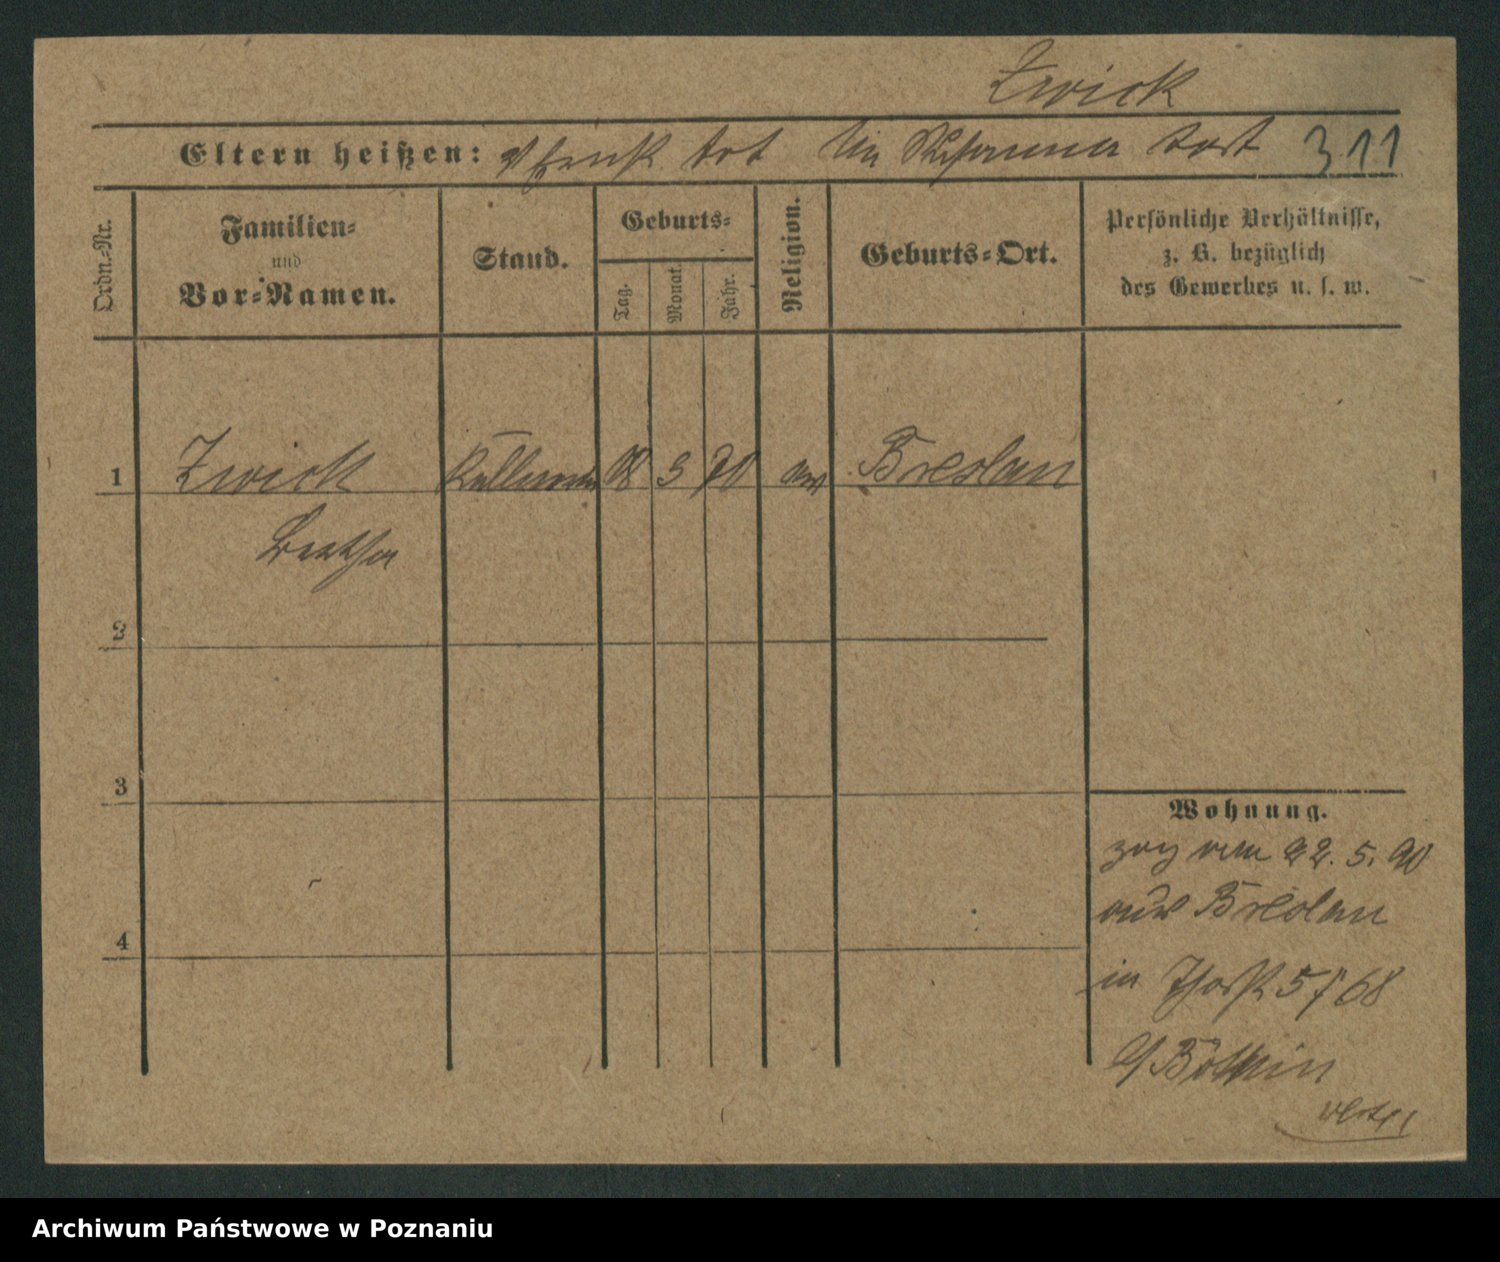 Zwick
Eltern heißen: tot Un tot 311
Ordn.-Nr.
Familien-
und
Vor-Namen.
Stand.
Geburts-
Tag.
Monat.
Jahr.
Religion.
Geburts-Ort.
Persönliche Verhältnisse,
z. B. bezüglich
des Gewerbes u. s. w.
1 Zwick Kellnerin 3 70 ev Breslau
Bertha
2
3
4
Wohnung.
zog am 22. 5. 90
aus Breslau
in 5/68
b/
Archiwum Państwowe w Poznaniu